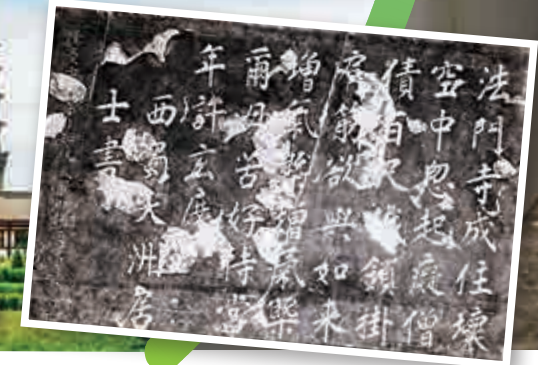 法門寺成住壞
空中忽起癡僧
債百尺鎖掛
肩筋欲與如來
增氣槩增氣槩
爾毋苦好待當
年許玄度
西蜀大洲居
士書